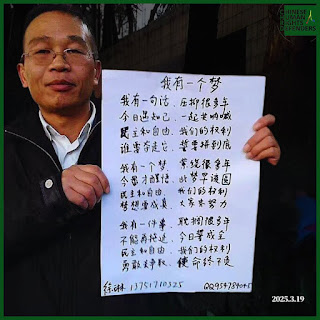 CHINESE
HUMAN
RIGHTS
DEFENDERS
我有一个梦
我有一句话、压抑很多年
今日遇知己、一起共呐喊
民主和自由、我们的权利
谁要夺走它、誓要拼到底
我有一个梦 萦绕很多年
今番才醒悟、此梦早该圆
民主和自由、我们的权利
梦想要成真 大家来努力
我有一件事、耽搁很多年
不能再拖延 今日等成全
民主和自由、我们的权利
勇敢去争取 使命终不变
徐琳 13751710325 QQ954784045
2025.3.19